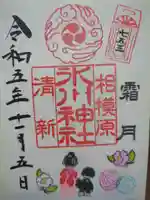 七五三
相模原
氷川神社
清新
霜月
令和五年十一月五日